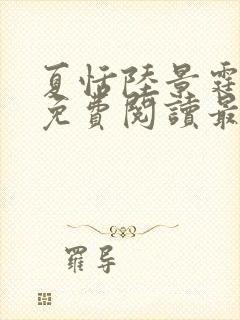 夏恬陸景霆
免費閱讀最
羅导